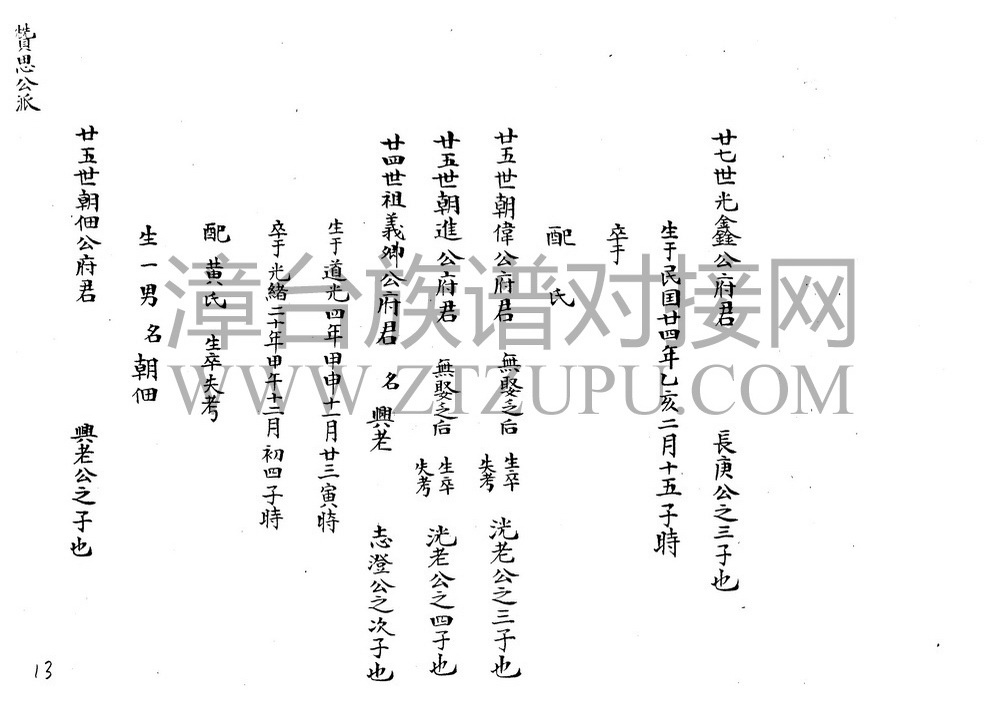 廿七世光鑫公府君 長庚公之三子也
生于民国廿四年乙亥二月十五子時
卒于
配 氏
廿五世朝偉公府君 無娶乏后 生卒失考 洸老公之三子也
廿五世朝進公府君 無娶乏后 生卒失考 洸老公之四子也
廿四世祖義卿公府君 名興老 志澄公之次子也
生于道光四年甲申十一月廿三寅時
卒于光緒二十年甲午十二月初四子時
配黄氏 生卒失考
生一男名朝佃
廿五世朝佃公府君 興老公之子也
贊思公派
13
漳台族谱对接网
WWW.ZTZUPU.COM